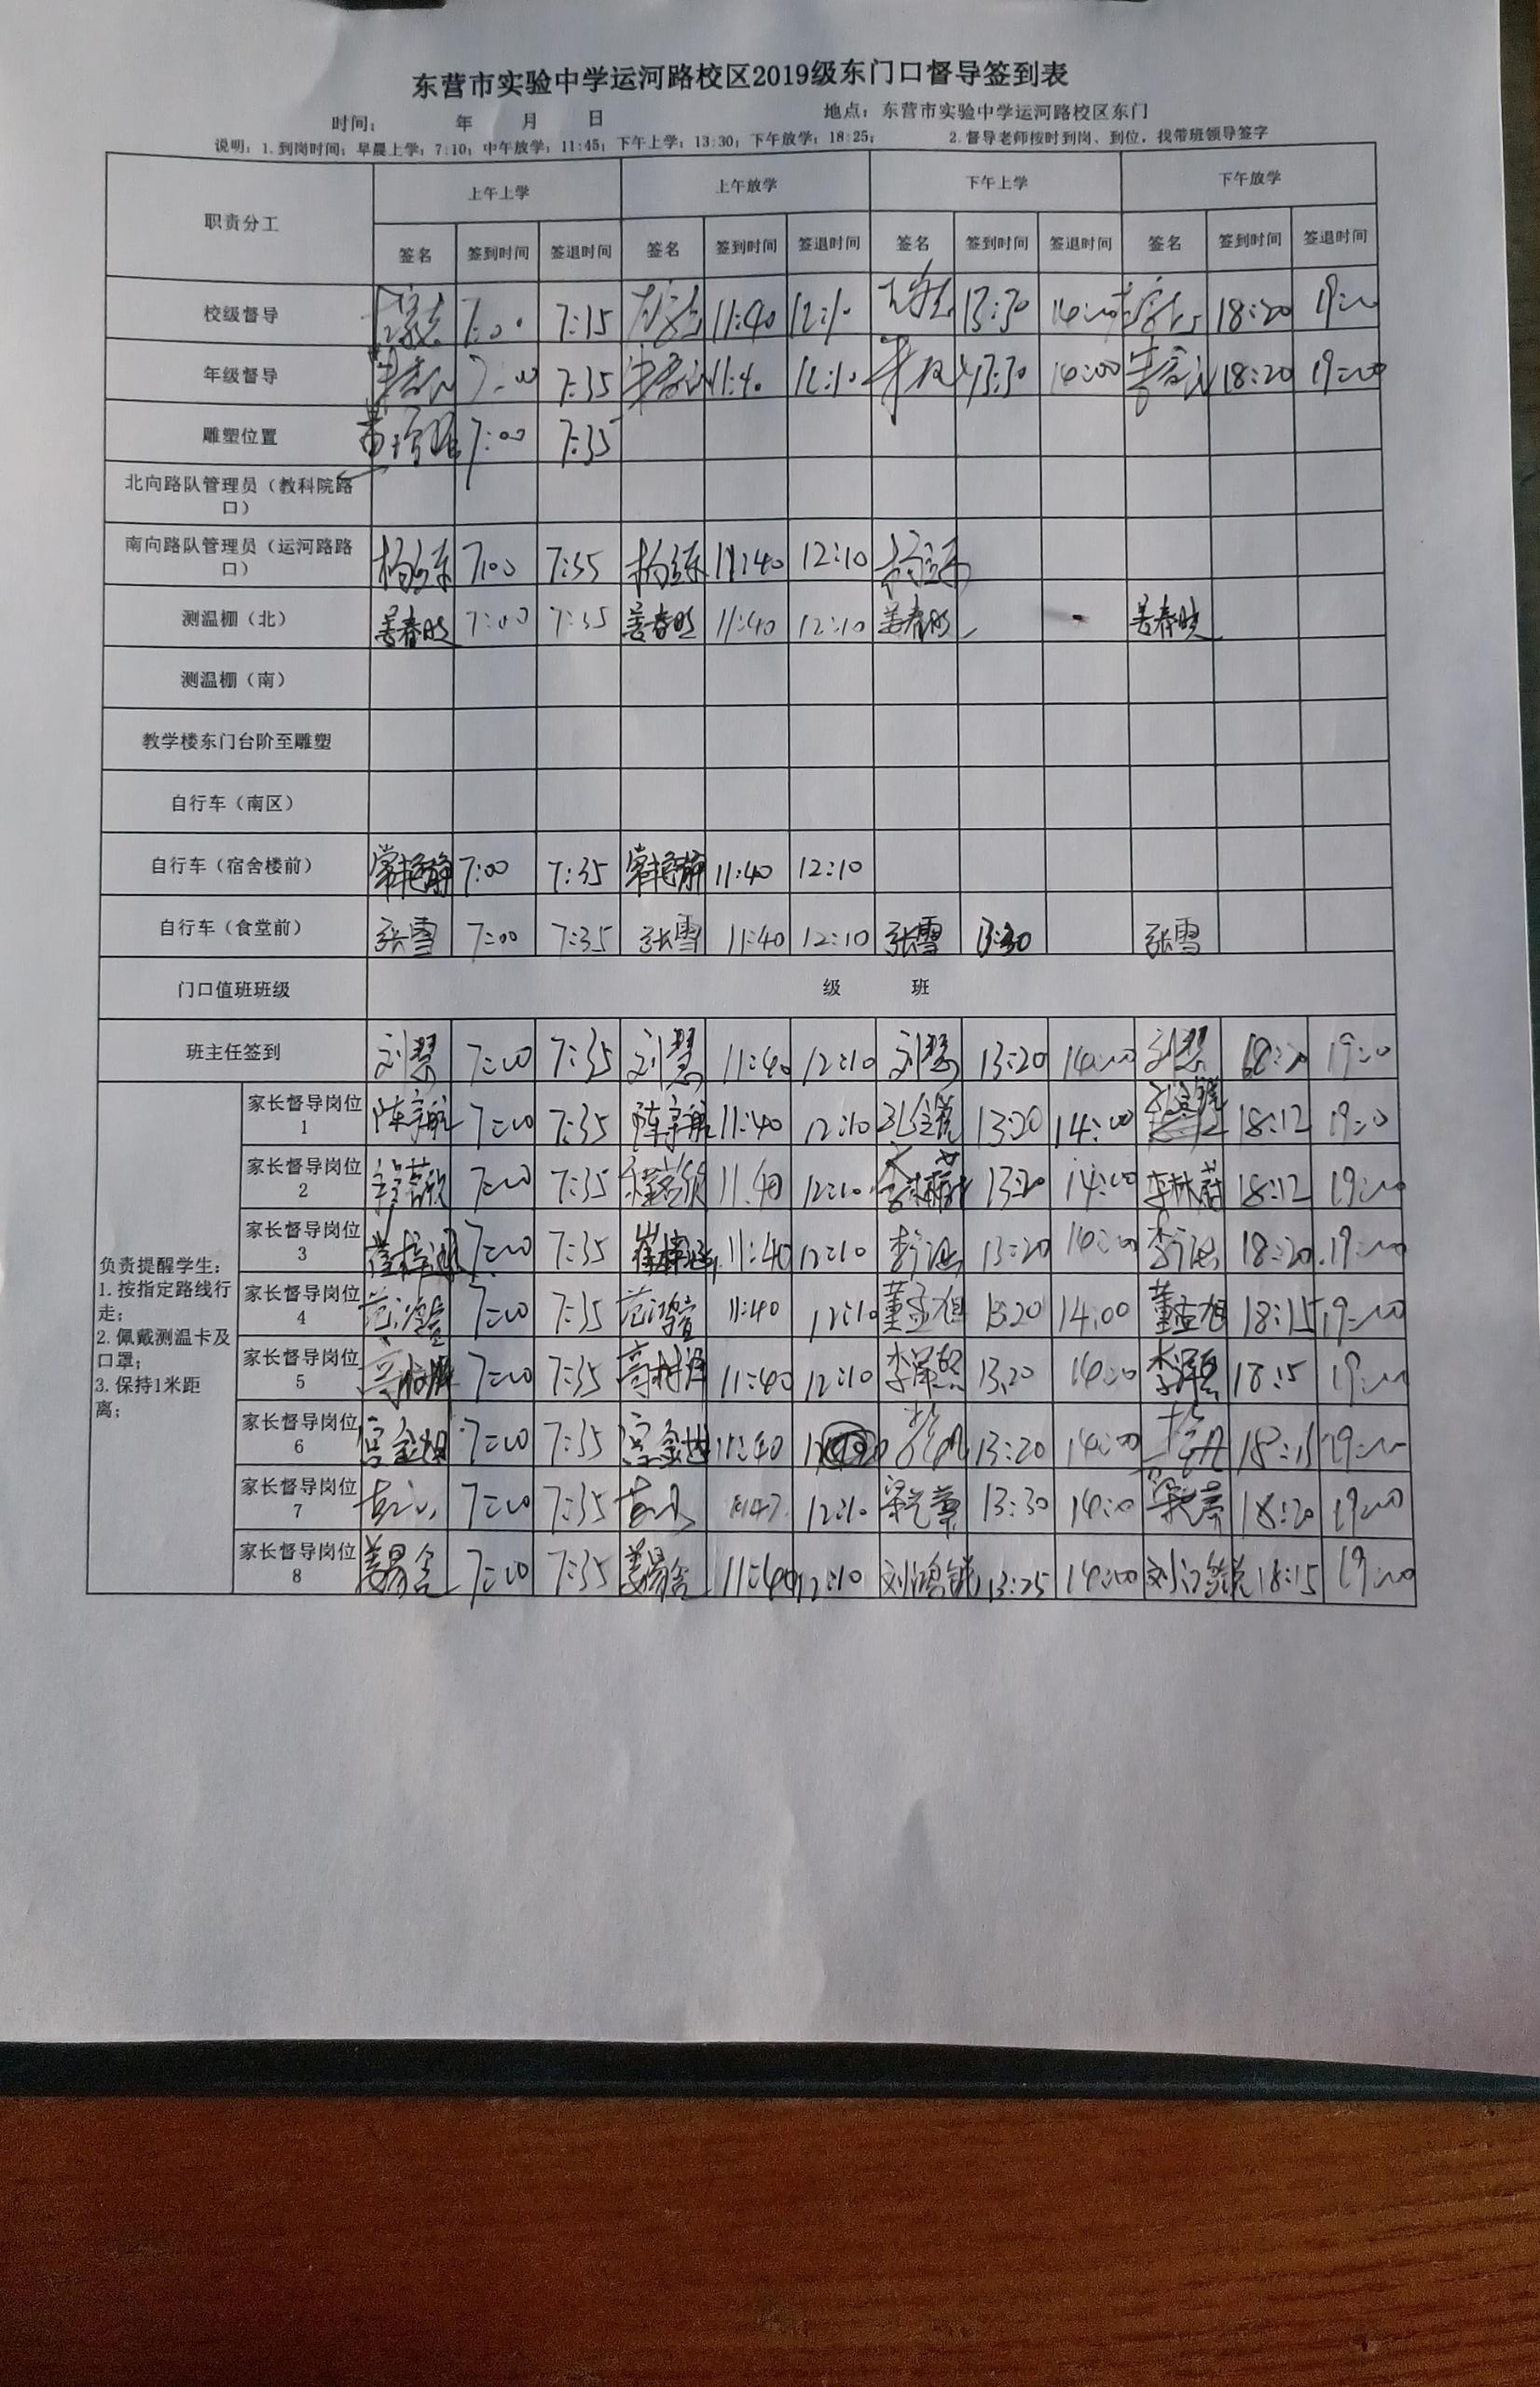 东营市实验中学运河路校区2019级东门口督导签到表
时间： 年 月 日 地点：东营市实验中学运河路校区东门
说明：1.到岗时间：早晨上学：7:10；中午放学：11:45；下午上学：13:30；下午放学：18:25； 2.督导老师按时到岗、到位，找带班领导签字
职责分工 上午上学 上午放学 下午上学 下午放学
签名 签到时间 签退时间 签名 签到时间 签退时间 签名 签到时间 签退时间 签名 签到时间 签退时间
校级督导 7:00 7:15 11:40 12:10 13:30 14:00 18:20 19:00
年级督导 7:00 7:35 11:40 12:10 13:30 14:00 18:20 19:00
雕塑位置 7:00 7:35
北向路队管理员（教科院路
口）
南向路队管理员（运河路路
口） 7:00 7:35 11:40 12:10
测温棚（北） 姜春晓 7:00 7:35 姜春晓 11:40 12:10 姜春晓 姜春晓
测温棚（南）
教学楼东门台阶至雕塑
自行车（南区）
自行车（宿舍楼前） 常艳静 7:00 7:35 常艳静 11:40 12:10
自行车（食堂前） 张雪 7:00 7:35 张雪 11:40 12:10 张雪 13:30 张雪
门口值班班级 级 班
班主任签到 刘慧 7:00 7:35 刘慧 11:40 12:10 刘慧 13:20 14:00 刘慧 18:20 19:00
负责提醒学生：
1.按指定路线行
走；
2.佩戴测温卡及
口罩；
3.保持1米距
离；
家长督导岗位
1 陈宇航 7:00 7:35 陈宇航 11:40 12:10 13:20 14:00 18:12 19:00
家长督导岗位
2 7:00 7:35 11:40 12:10 李林蔚 13:20 14:00 李林蔚 18:12 19:00
家长督导岗位
3 7:00 7:35 11:40 12:10 13:20 14:00 18:20 19:00
家长督导岗位
4 7:00 7:35 11:40 12:10 董孟旭 13:20 14:00 董孟旭 18:15 19:00
家长督导岗位
5 7:00 7:35 11:40 12:10 13:20 14:00 18:15 19:00
家长督导岗位
6 宫金旭 7:00 7:35 宫金旭 11:40 13:20 14:00 18:15 19:00
家长督导岗位
7 7:00 7:35 12:10 13:30 14:00 18:20 19:00
家长督导岗位
8 7:00 7:35 11:40 12:10 刘鸿锐 13:25 14:00 刘鸿锐 18:15 19:00